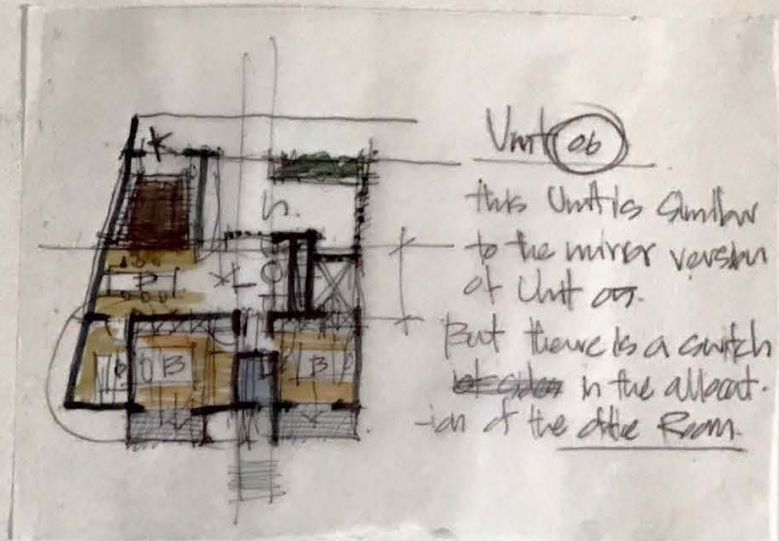 Unit 06
this Unit is Similar
to the mirror version
of Unit
But there is a switch
in the allocat-
-ion of the office Room.
D
B
B